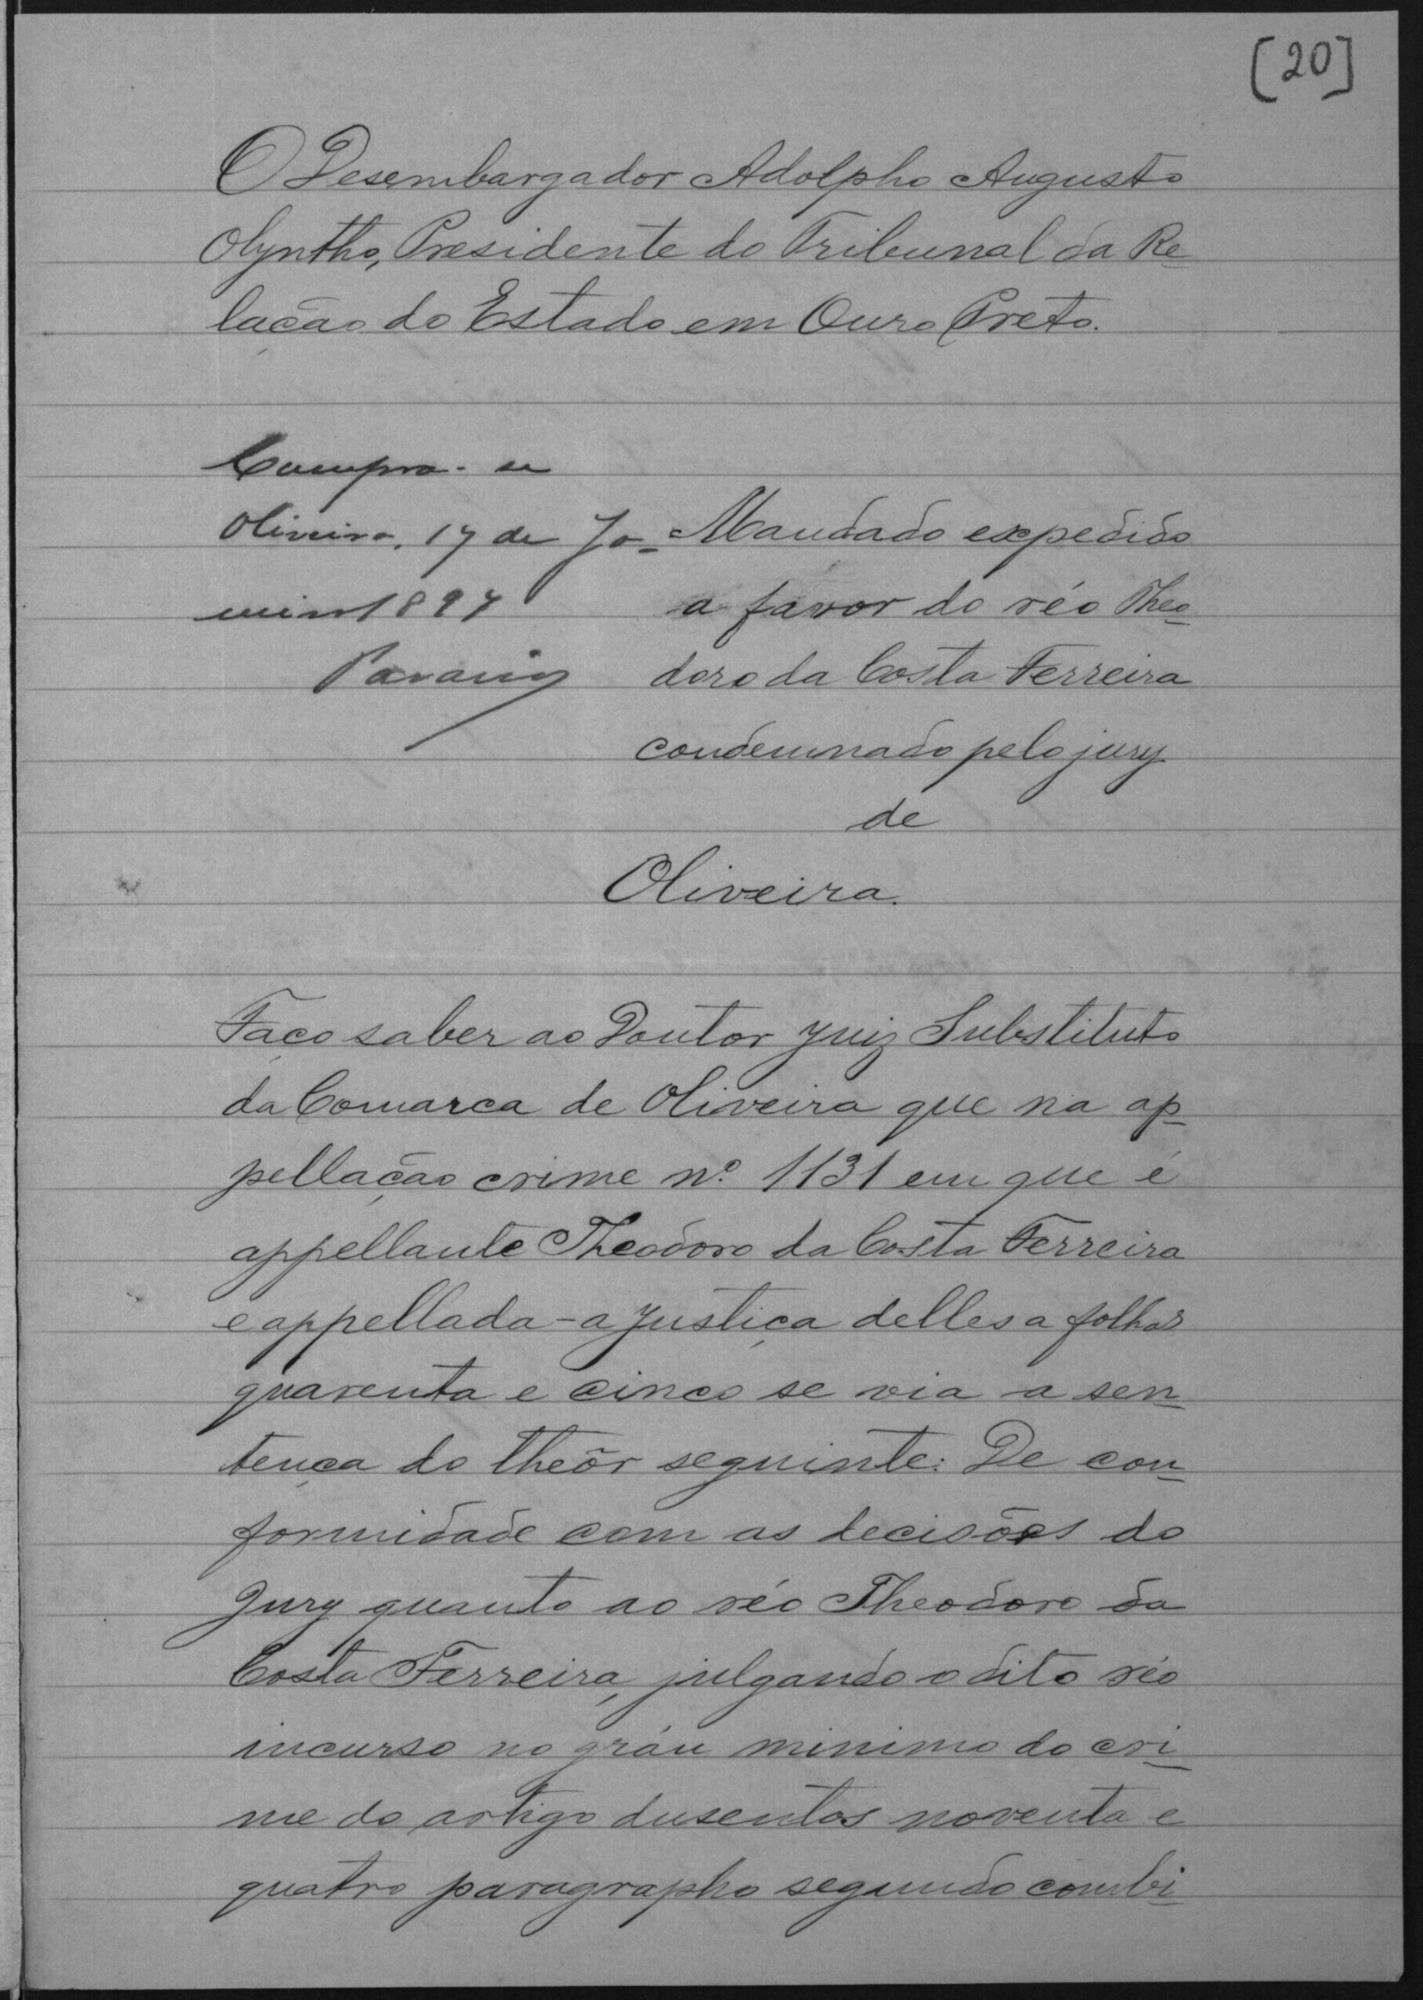 [20]
O Desembargador Adolpho Augusto
Olyntho, Presidente do Tribunal da Re-
lação do Estado em Ouro Preto.
Cumpra-se
Oliveira, 17 de Ja-
neiro 1897
Mandado expedido
a favor do réo Theo-
doro da Costa Ferreira
condemnado pelo jury
de
Oliveira.
Faço saber ao Doutor Juiz Substituto
da Comarca de Oliveira que na ap-
pellação crime nº 1131 em que é
appellante Theodoro da Costa Ferreira
e appellada - a Justiça delles a folhas
quarenta e cinco se via a sen-
tença do theôr seguinte: De con-
formidade com as decisões do
Jury quanto ao réo Theodoro da
Costa Ferreira, julgando o dito réo
incurso no gráu minimo do cri-
me do artigo dusentos noventa e
quatro paragrapho segundo combi-